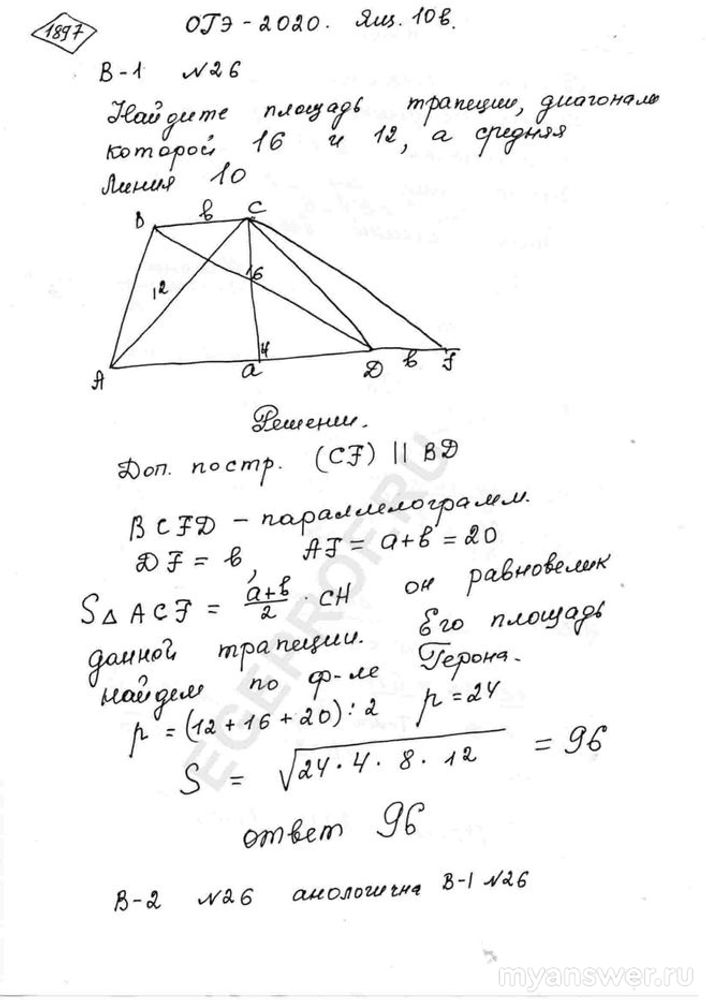 1897
ОГЭ-2020. Ящ. 10в.
В-1 №26
Найдите площадь трапеции, диагонали
которой 16 и 12, а средняя
линия 10
B в C
12 16
A a 4 D в F
Решении.
Доп. постр. (CF) || BD
BCFD - параллелограмм.
DF = в, AF = a+в = 20
S△ACF = a+в/2 · CH он равновелик
данной трапеции. Его площадь
найдем по ф-ле Герона.
p = (12+16+20):2 p = 24
S = √24·4·8·12 = 96
ответ 96
В-2 №26 анологична В-1 №26
EGEPROF.RU
myanswer.ru